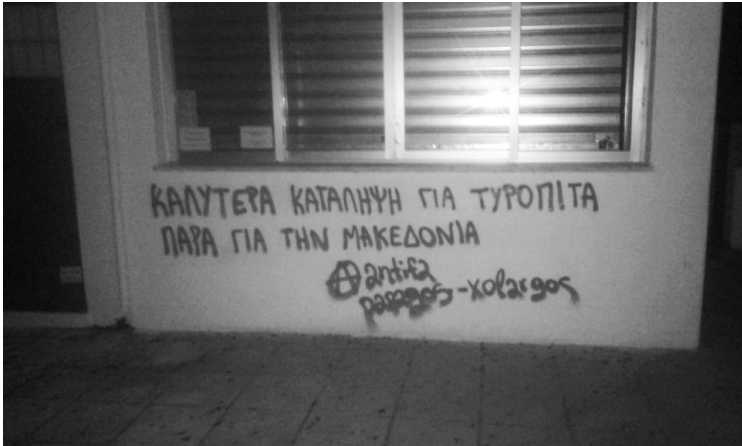 ΚΑΛΥΤΕΡΑ ΚΑΤΑΛΗΨΗ ΓΙΑ ΤΥΡΟΠΙΤΑ
ΠΑΡΑ ΓΙΑ ΤΗΝ ΜΑΚΕΔΟΝΙΑ
Ⓐ antifa
papagos-xolargos